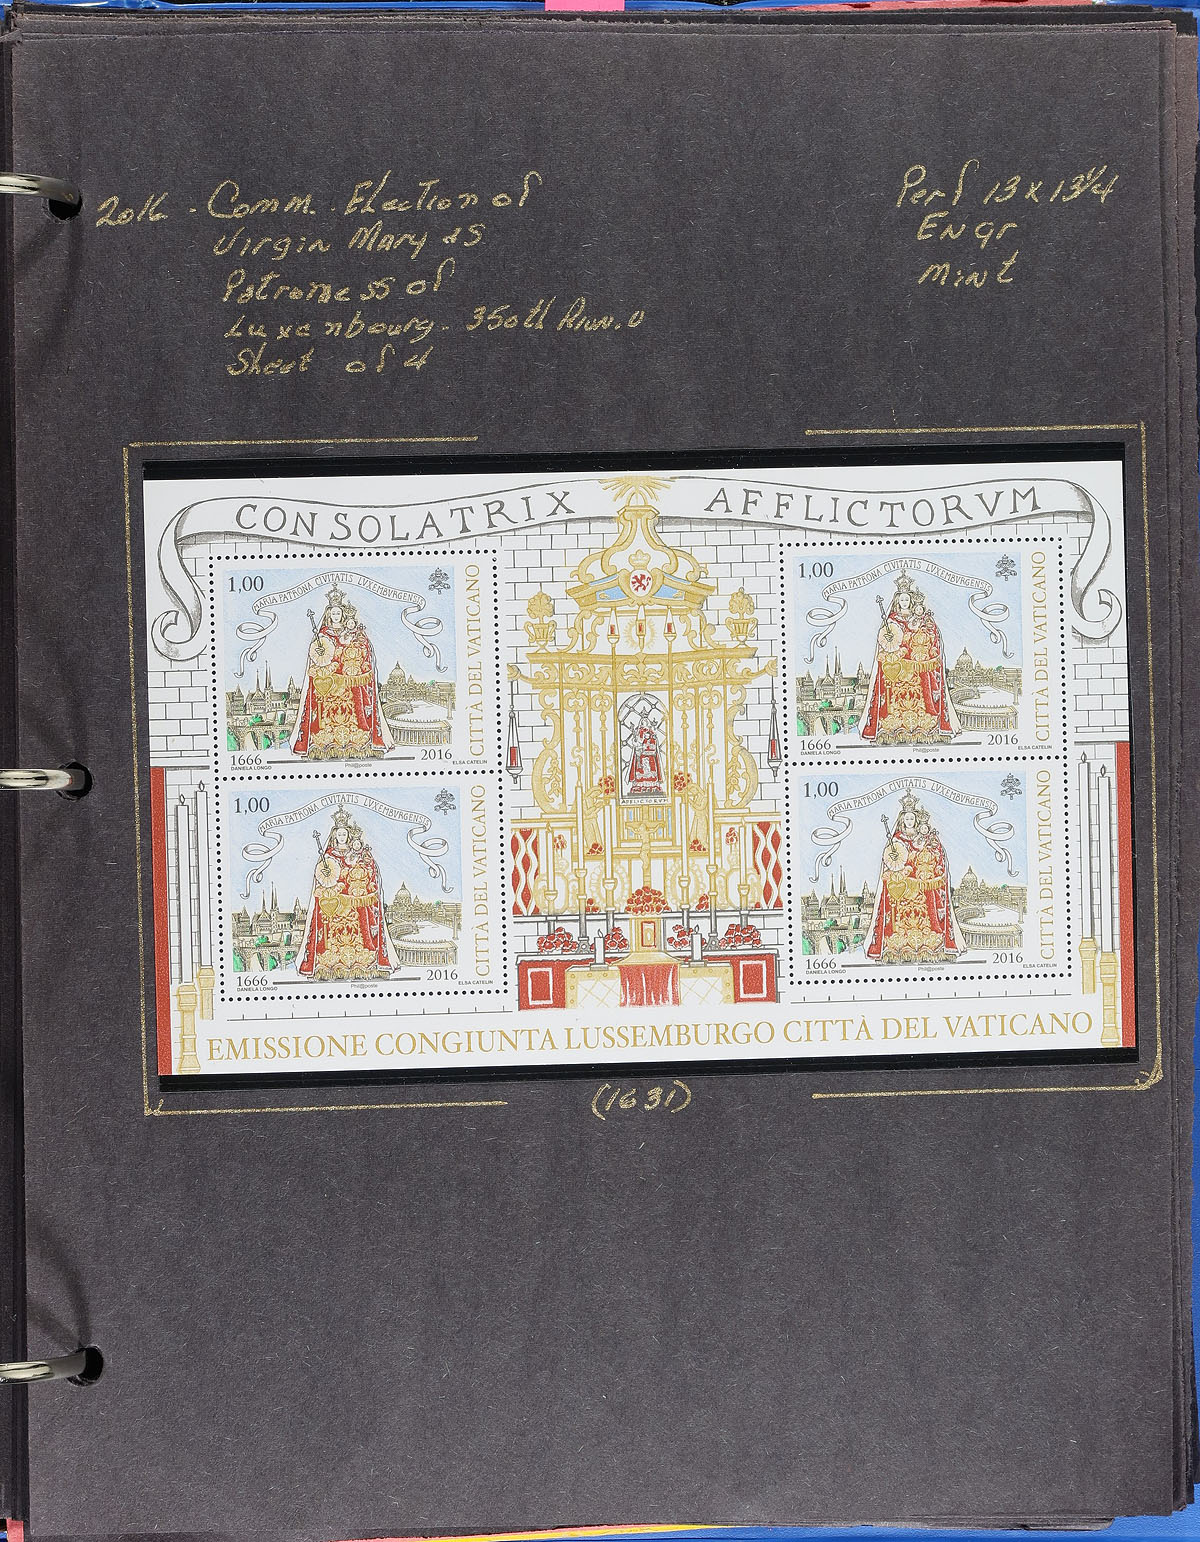 2016 - Comm. Election of
Virgin Mary as
Patroness of
Luxenbourg - 350th
Sheet of 4
Perf 13 x 13 1/4
Engr
Mint
CONSOLATRIX AFFLICTORVM
1,00
MARIA PATRONA CIVITATIS LUXEMBURGENSIS
CITTÀ DEL VATICANO
1666 2016
DANIELA LONGO Phil@poste ELSA CATELIN
1,00
MARIA PATRONA CIVITATIS LUXEMBURGENSIS
CITTÀ DEL VATICANO
1666 2016
DANIELA LONGO Phil@poste ELSA CATELIN
AFFLICTORVM
1,00
MARIA PATRONA CIVITATIS LUXEMBURGENSIS
CITTÀ DEL VATICANO
1666 2016
DANIELA LONGO Phil@poste ELSA CATELIN
1,00
MARIA PATRONA CIVITATIS LUXEMBURGENSIS
CITTÀ DEL VATICANO
1666 2016
DANIELA LONGO Phil@poste ELSA CATELIN
EMISSIONE CONGIUNTA LUSSEMBURGO CITTÀ DEL VATICANO
(1631)